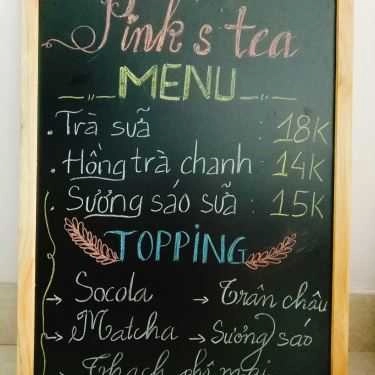 Pink's tea
MENU
. Trà sữa : 18K
. Hồng trà chanh : 14K
. Sương sáo sữa : 15K
TOPPING
→ Socola → Trân châu
→ Matcha → Sương sáo
Thạch phô mai